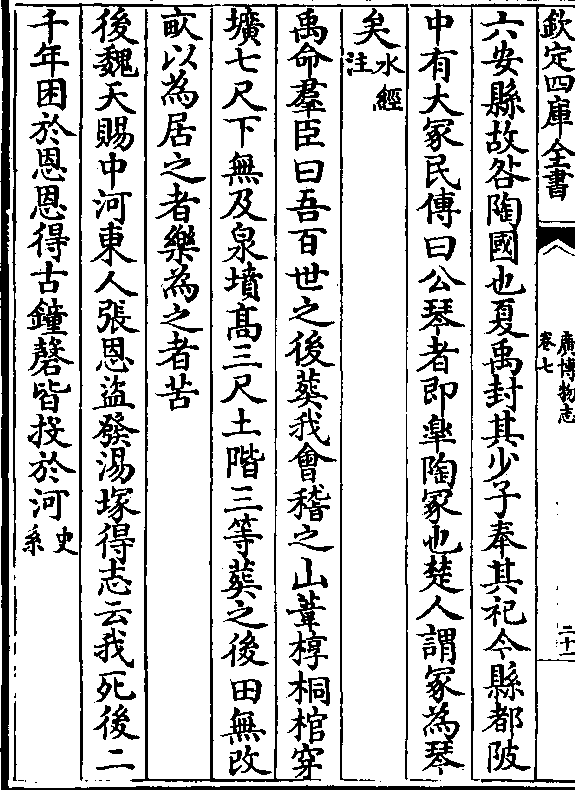 欽定四庫全書
廣博物志
卷七
二十一
六安縣故咎陶國也夏禹封其少子奉其祀今縣都陂
中有大冢民傳曰公琴者即臯陶冢也楚人謂冢為琴
矣水經注
禹命羣臣曰吾百世之後葬我會稽之山葦椁桐棺穿
壙七尺下無及泉墳髙三尺土階三等葬之後田無改
畝以為居之者樂為之者苦
後魏天賜中河東人張恩盜發湯塚得志云我死後二
千年困於恩恩得古鐘磬皆投於河史系